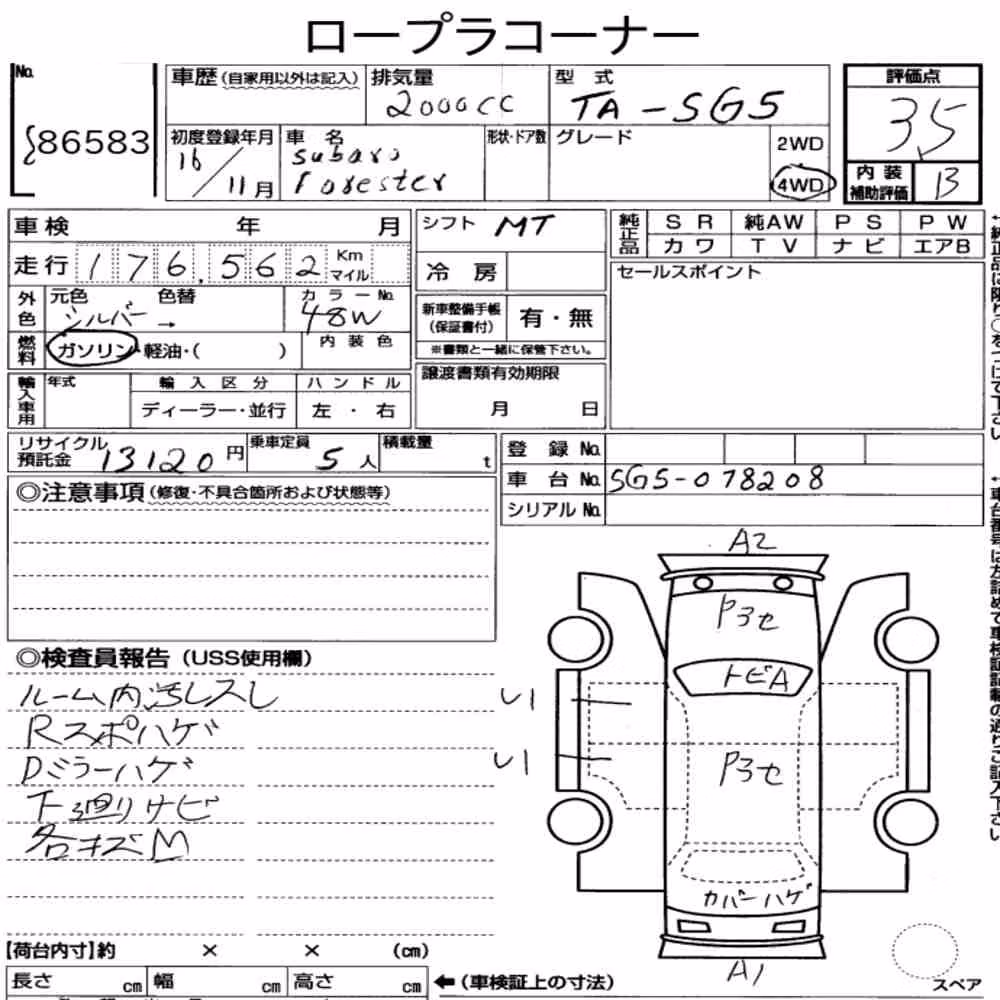 ロープラコーナー
No.
86583
車歴 (自家用以外は記入)
排気量
2000cc
型式
TA-SG5
評価点
3.5
初度登録年月
16/11月
車名
Subaru
Forester
形状・ドア数
グレード
2WD
4WD
内装
補助評価
B
車検 年 月
走行 176,562 Km
マイル
外色
元色 色替
シルバー →
カラーNo.
48W
燃料
ガソリン・軽油・( )
内装色
輸入車用
年式
輸入区分
ハンドル
ディーラー・並行
左・右
シフト MT
冷房
新車整備手帳
(保証書付)
有・無
※書類と一緒に保管下さい。
譲渡書類有効期限
月 日
純正品
SR 純AW PS PW
カワ TV ナビ エアB
セールスポイント
リサイクル
預託金
13120円
乗車定員
5人
積載量
t
登録No.
車台No. SG5-078208
シリアルNo.
◎注意事項 (修復・不具合箇所および状態等)
◎検査員報告 (USS使用欄)
ルーム内汚レスレ
Rスポハゲ
Dミラーハゲ
下廻りサビ
各キズM
A2
P3セ
トビA
P3セ
カバーハゲ
A1
【荷台内寸】約 × × (cm)
長さ cm 幅 cm 高さ cm
←(車検証上の寸法)
スペア